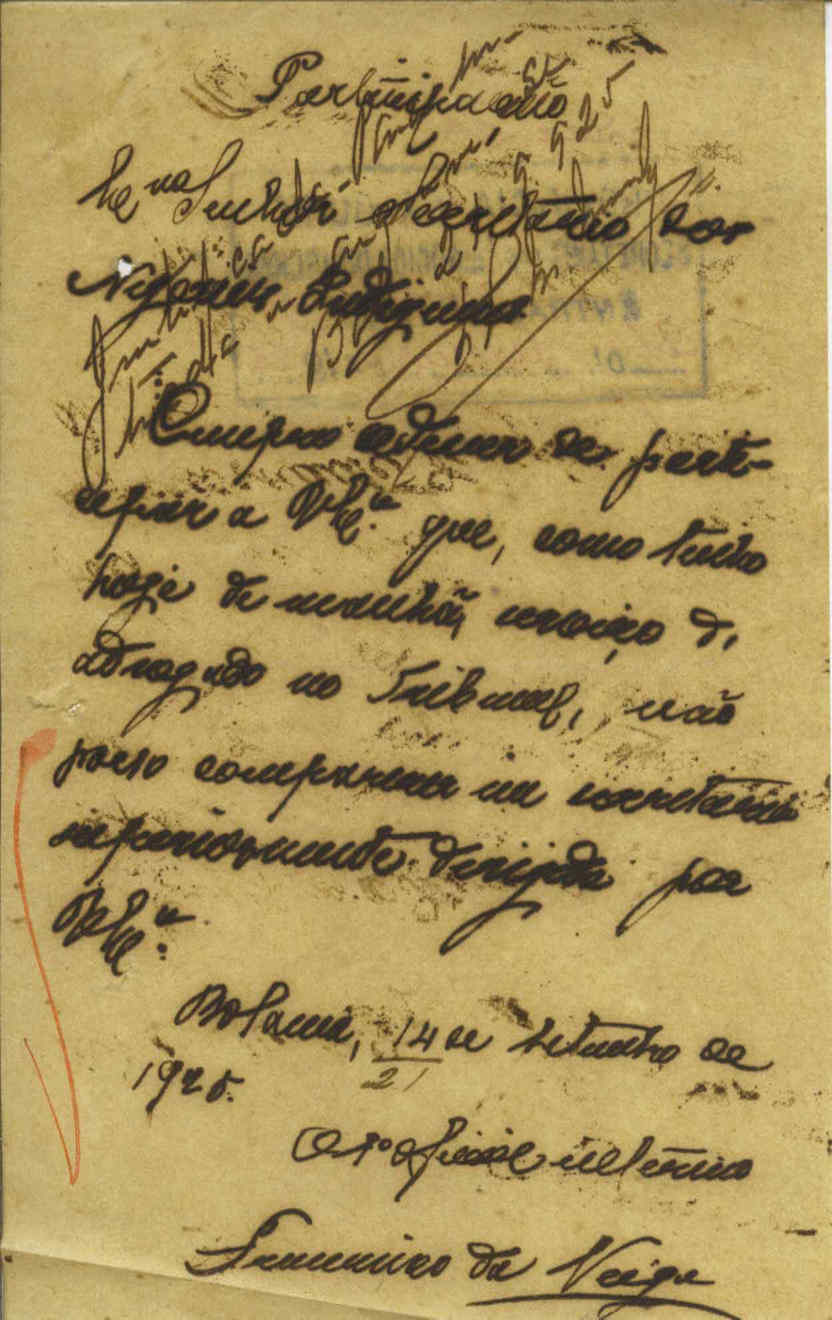 Participação
Exmo Senhor Secretario dos
Negocios Indigenas
Cumpro o dever de parti-
cipar a V. Exa. que, como tenho
hoje de manhã, serviço de
advogado no Tribunal, não
posso comparecer na secretaria
superiormente dirigida por
V. Exa.
Bolama, 14 de setembro de
21
1925.
O 1º oficial interino
Francisco da Veiga